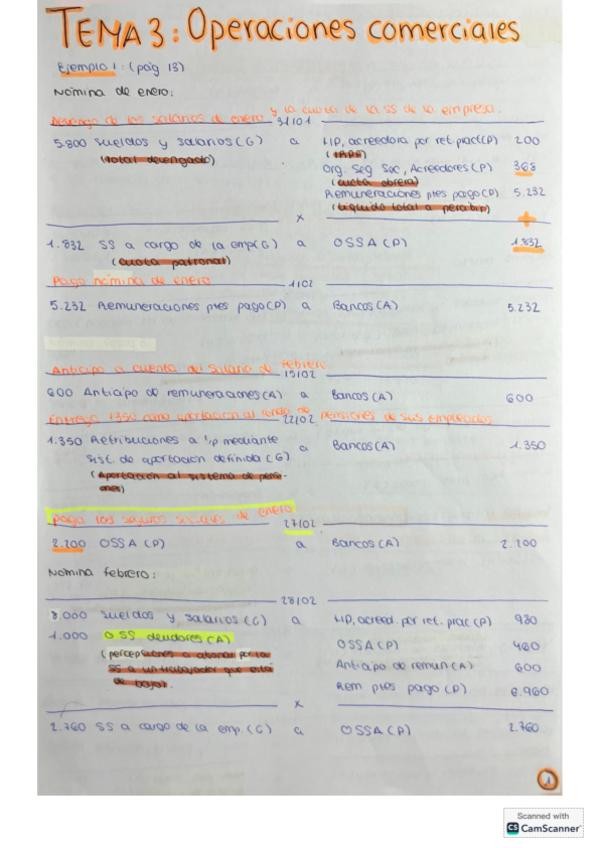 TEMA 3: Operaciones comerciales
Ejemplo 1: (pág 13)
Nómina de enero:
Devengo de los salarios de enero y la cuota de la SS de la empresa.
31/01
5.800 sueldos y salarios (G) a HP, acreedora por ret. pract (P) 200
(total devengado) (IRPF)
Org. Seg Soc, Acreedores (P) 368
(cuota obrera)
Remuneraciones ptes pago (P) 5.232
(líquido total a percibir)
x
+
1.832 SS a cargo de la emp (G) a OSSA (P) 1.832
(cuota patronal)
Pago nómina de enero
1/02
5.232 Remuneraciones ptes pago (P) a Bancos (A) 5.232
Anticipo a cuenta del salario de febrero
15/02
600 Anticipo de remuneraciones (A) a Bancos (A) 600
Entrega 1350 como aportación al fondo de pensiones de sus empleados
22/02
1.350 Retribuciones a l/p mediante a Bancos (A) 1.350
sist. de aportación definida (G)
(Aportación al sistema de pensi-
ones)
Paga los seguros sociales de enero
27/02
2.200 OSSA (P) a Bancos (A) 2.200
Nómina febrero:
28/02
8.000 sueldos y salarios (G) a HP, acreed. por ret. prac (P) 980
1.000 O SS. deudores (A) OSSA (P) 460
(percepciones a abonar por la Anticipo de remun (A) 600
SS a un trabajador que está Rem ptes pago (P) 6.960
de baja).
x
2.760 SS a cargo de la emp. (G) a OSSA (P) 2.760
1
Scanned with
CS CamScanner